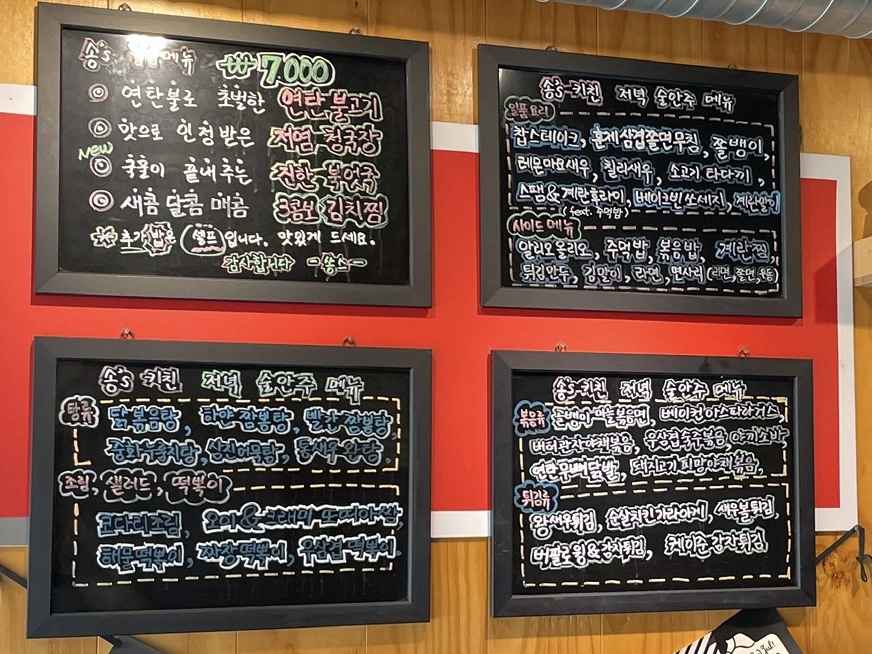 송's 메뉴 ₩ 7000
연탄불로 초벌한 연탄 불고기
맛으로 인정받은 저염 청국장
NEW
국물이 끝내주는 진한 북엇국
새콤 달콤 매콤 3콤보 김치찜
추가밥은 셀프 입니다. 맛있게 드세요.
감사합니다 -송's-
송's 키친 저녁 술안주 메뉴
일품요리
찹스테이크, 훈제삼겹쫄면무침, 쫄뱅이,
레몬마요새우, 칠리새우, 소고기 타다끼,
스팸&계란후라이, 베이크빈쏘세지, 계란말이
(feat. 주먹밥)
사이드 메뉴
알리오올리오, 주먹밥, 볶음밥, 계란찜,
튀김만두, 김말이, 라면, 면사리(라면,쫄면,우동)
송's 키친 저녁 술안주 메뉴
탕류
닭볶음탕, 하얀 짬뽕탕, 빨간 짬뽕탕,
중화누룽지탕, 삼진어묵탕, 통새우 완탕,
조림, 샐러드, 떡볶이
코다리조림, 오이&
해물떡볶이, 짜장떡볶이, 우삼겹 떡볶이.
송's 키친 저녁 술안주 메뉴
볶음류
골뱅이마늘볶음면, 베이컨아스파라거스,
버터관자야채볶음, 우삼겹숙주볶음, 야끼소바,
연탄무뼈닭발, 돼지고기피망야채볶음,
튀김류
왕새우튀김, 순살치킨가라아게, 새우볼튀김,
버팔로윙&감자튀김, 케이준 감자튀김,